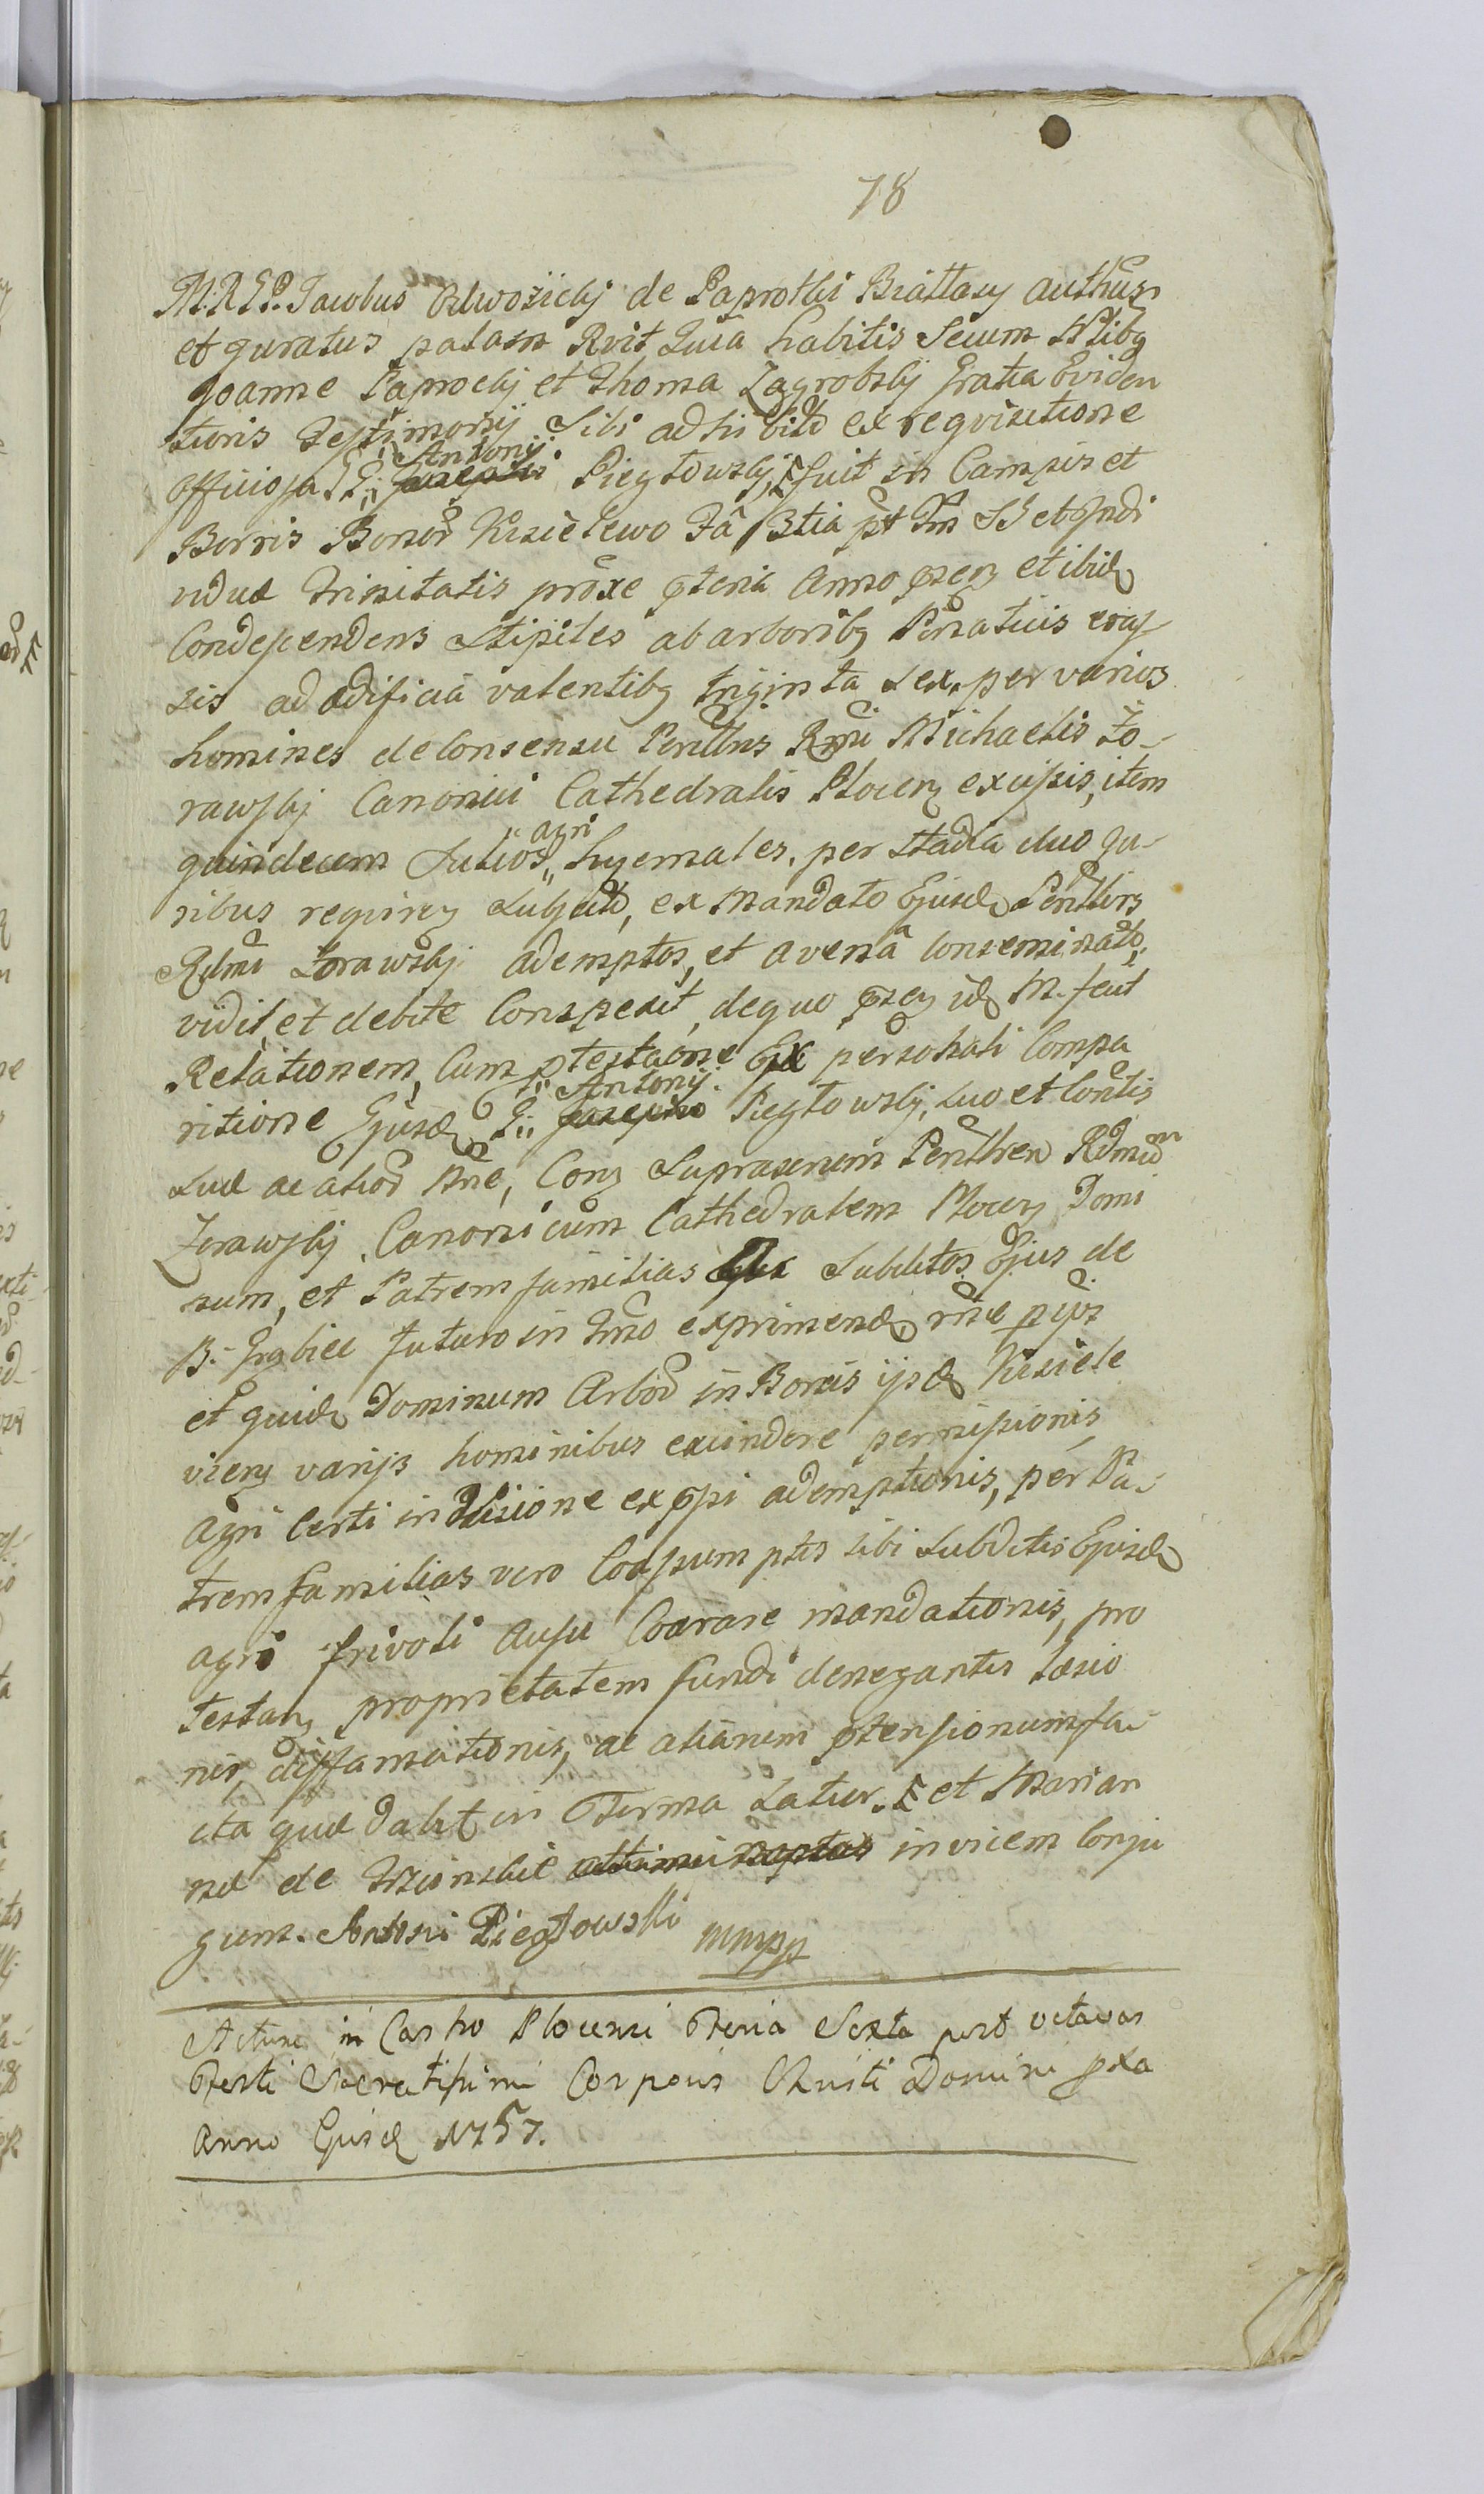 78
M. R. G. P. Jacobus Odwozickj de Paprotki Briattasy authus
et juratus palam Rvit Quia habitis Secum Nlibq
Joanne Paprockj et Thoma Zagrobskj Gratia Eviden
tioris Testimonij Sibi adhibitd ex requisitione
officiosa G Antonij Piegtowskj, fuit in Campis et
Borris Bonor Kisielewo Fa 3tia pt Fm SS et Indi
vidua Trinitatis proxe pterita Anno psenz et ibide
Condependens Stipites ab arboribq Pinaticis exci
sis ad adificia valentibq triginta sex, per varios
homines de Consensu Perillris Rmi Michaelis Zo-
rawskj Canonici Cathedralis Plocenz excisis, item
quindecim Sulcos agri hyemales, per stadia duo Ju-
ribus requirenz Subjectd, ex Mandato Ejusd Perillris
Rdmi Zorawskj ademptos, et avena Conseminatos;
vidit, et debite Conspexit, de quo psenz ide M. fecit
Relationem, Cum ptestatione Ex personali Compa
ritione Ejusd G: Antonij Piegtowskj, suo et Contis
Sua ac alior Nne, Conz Suprascrium Perillrem Rdmum
Zorawskj Canonicum Cathedralem Plocenz Domi
num, et Patrem familias Subditos Ejus de
futuro in Tmo exprimend
et quide Dominum Arbor in Bonis ipsd Kisiele
vienz varijs hominibus excindere permissionis
agri Certi in Divisione ex ppi ademptionis, per Pa-
trem familias vero Coassumptis sibi Subditis Ejusd
agri frivoli Ausu Coarare mandationis, pro
testanz proprietatem fundi denegantis lasio
nis, diffamationis, ac aliarum ptensionum fa-
cta qua dabit in Terma Latius. et Marian
na de invicem Conju
gum. Antoni Piegtowski mmpp
Actum in Castro Plocensi Feria Sexta post octavas
Festi Sacratissimi Corporis Christi Domini pxa
Anno Ejusd 1757.